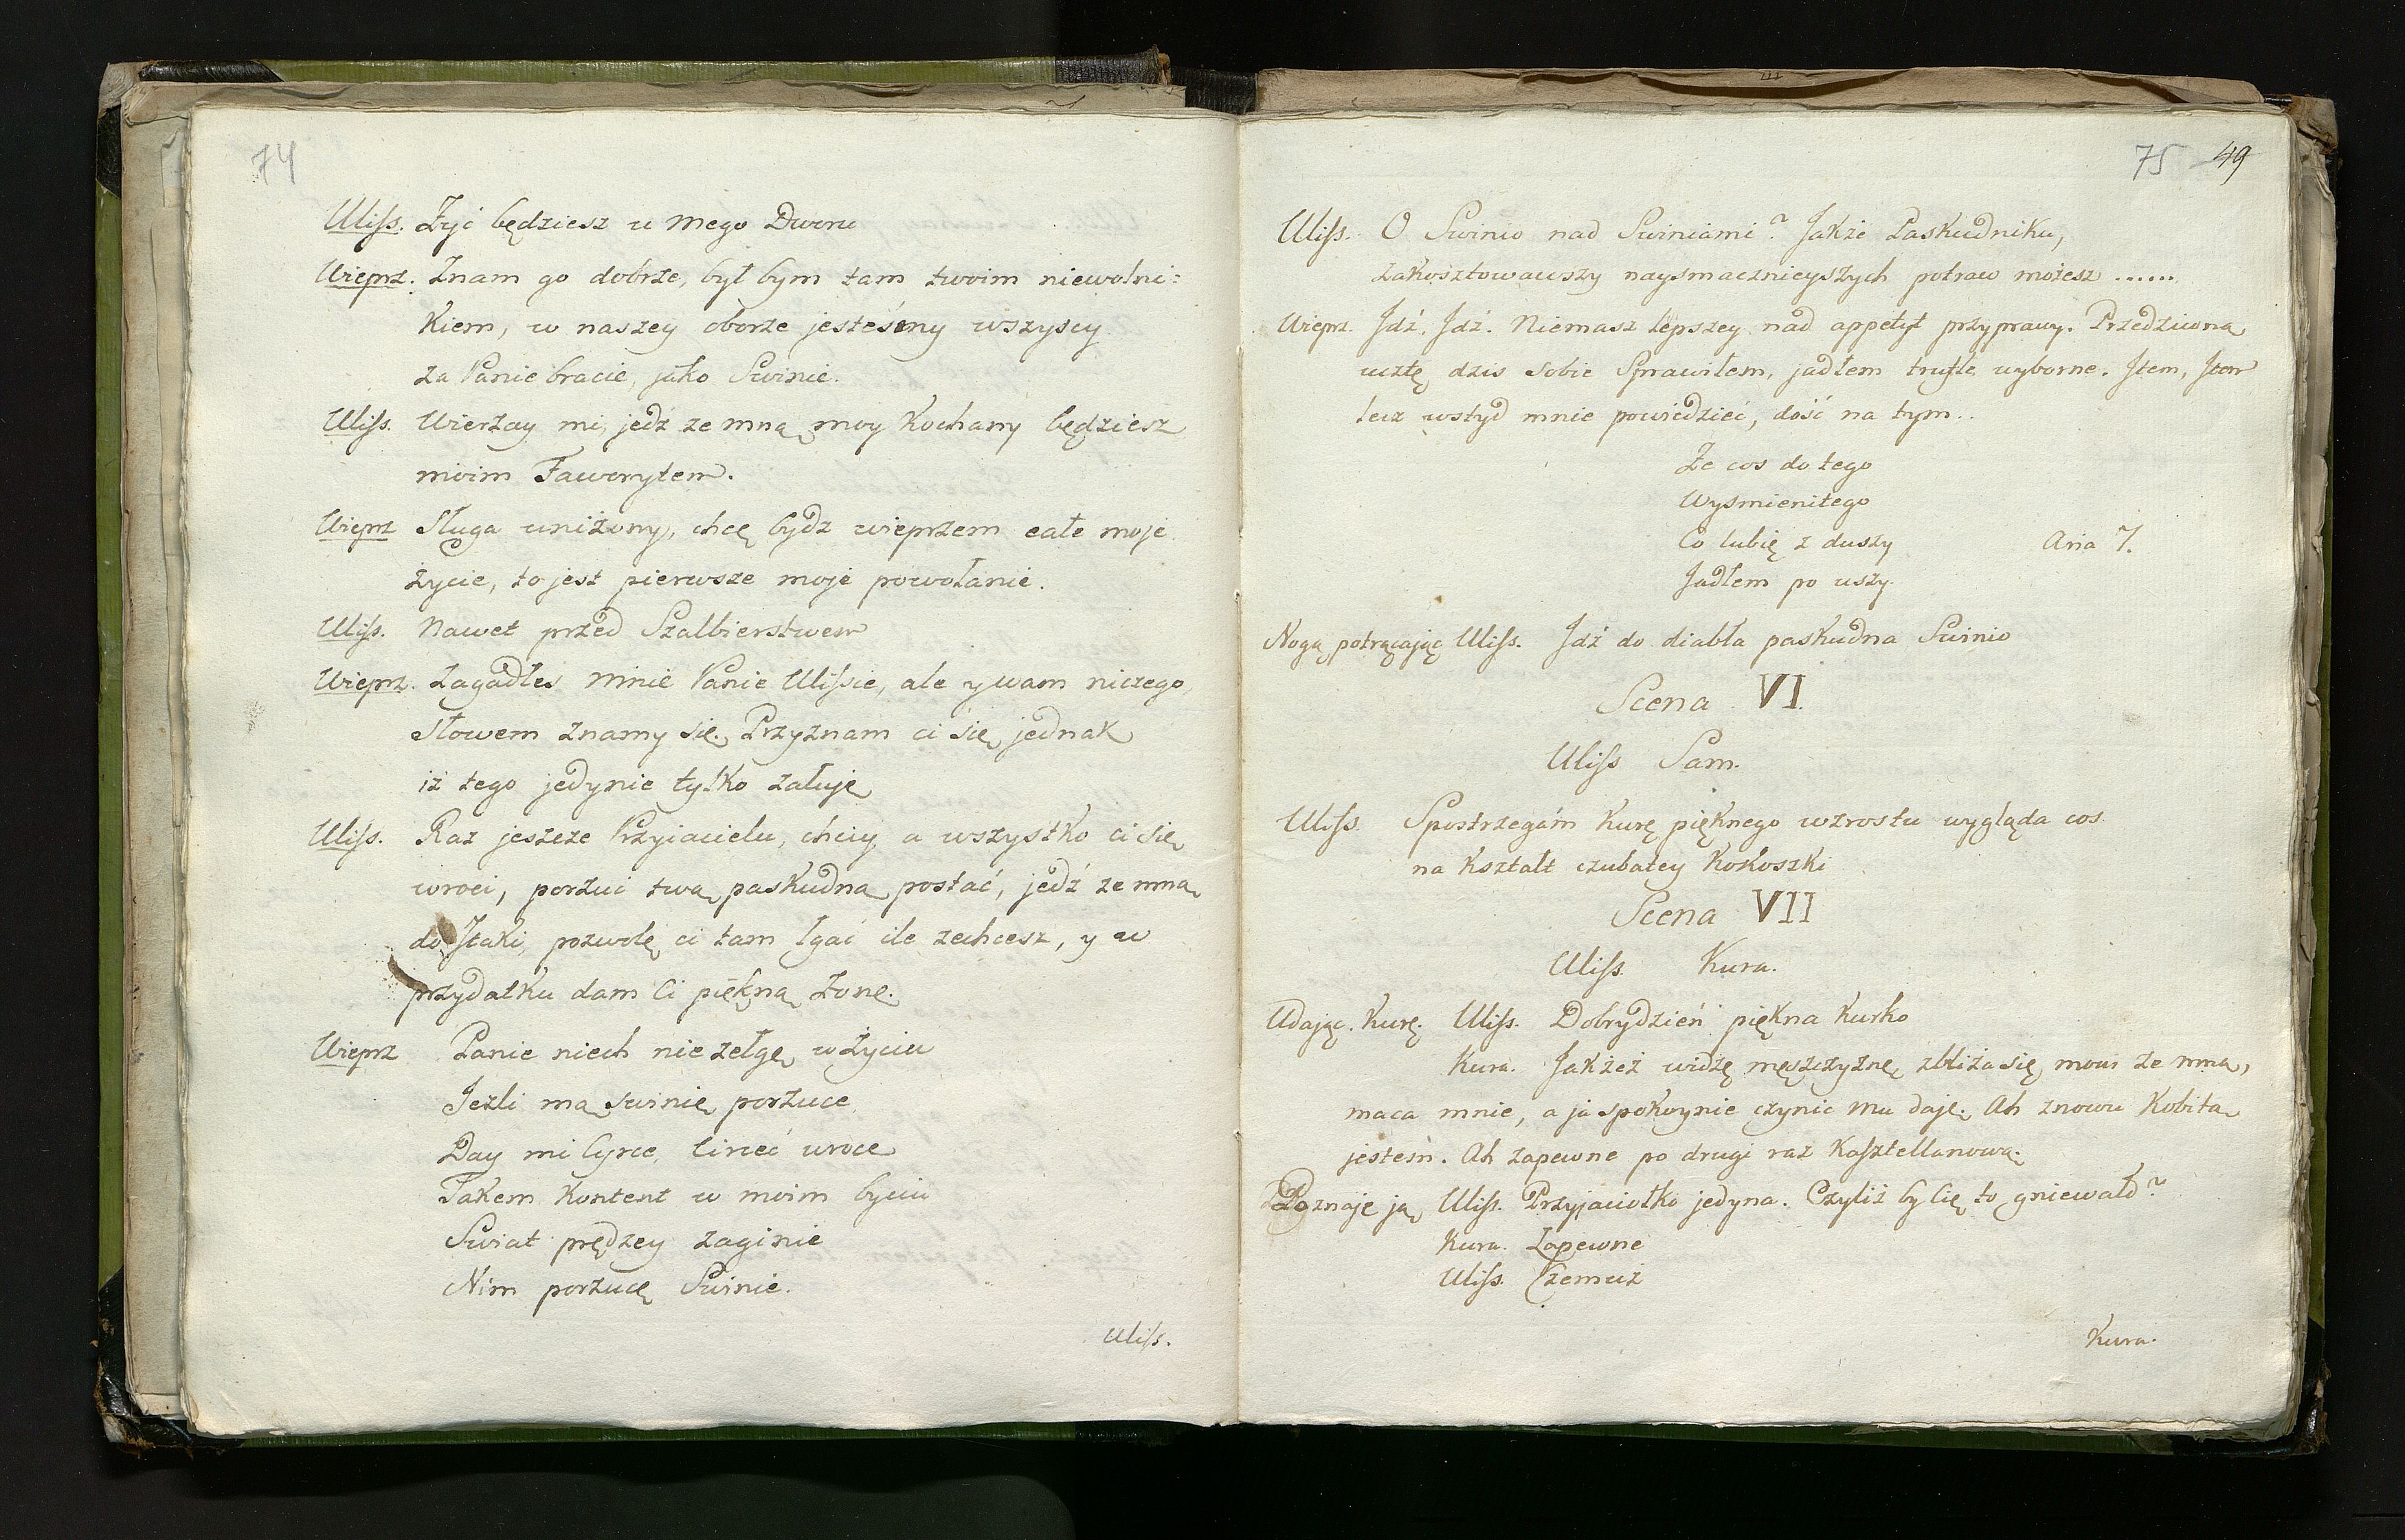 74
Uliss. Zyć będziesz u mego Dworu
Wieprz. Znam go dobrze, był bym tam twoim niewolni=
kiem, w naszey oborze jesteśmy wszyscy
za Panie bracie, jako Swinie.
Uliss. Wierzay mi, jedź ze mną moy kochany będziesz
moim Faworytem.
Wieprz Sługa uniżony, chcę bydz wieprzem całe moje
życie, to jest pierwsze moje powołanie.
Uliss. Nawet przed Szalbierstwem
Wieprz. Zagadłes mnie Panie Ulissie, ale y wam niczego,
słowem znamy się. Przyznam ci się jednak
iż tego jedynie tylko załuję
Uliss. Raz jeszcze Przyiacielu, chciy a wszystko ci się
wroci, porzuć twą paskudną postać, jedź ze mną
do Itaki, pozwolę ci tam łgać ile zechcesz, y w
przydatku dam Ci piękną Zonę.
Wieprz Panie niech nie zełgę w życiu
Jeżli mą swinię porzucę
Day mi Cyrce, Circeć wrocę
Takem kontent w moim byciu
Swiat prędzey zaginie
Nim porzucę Swinie.
Uliss.
75 49
Uliss. O Swinio nad Swiniami? Jakże Paskudniku,
zakosztowawszy naysmacznieyszych potraw możesz ......
Wieprz. Idź, Idź. Niemasz lepszey nad appetyt przyprawy. Przedziwną
ucztę dzis sobie Sprawiłem, jadłem trufle wyborne. Item, Item
lecz wstyd mnie powiedzieć, dość na tym..
Ze cos do tego
Wysmienitego
Co lubię z duszy Aria 7.
Jadłem po uszy.
Nogą potrącając Uliss. Idź do diabła paskudna Swinio
Scena VI.
Uliss Sam.
Uliss. Spostrzegám kurę pięknego wzrostu wygląda cos
na kształt czubatey kokoszki
Scena VII
Uliss. Kura.
Udając. kurę. Uliss. Dobrydzień piękna kurko
Kura. Jakżeż widzę męszczyznę zbliża się, mowi ze mną,
maca mnie, a ja spokoynie czynic mu daję. Ah znowu kobitą
jestem. Ah zapewne po drugi raz kasztellanową.
Poznaje ją Uliss. Przyjaciołko jedyna. Czyliż by Cię to gniewało?
Kura. Zapewne
Uliss. Czemuż
Kura.